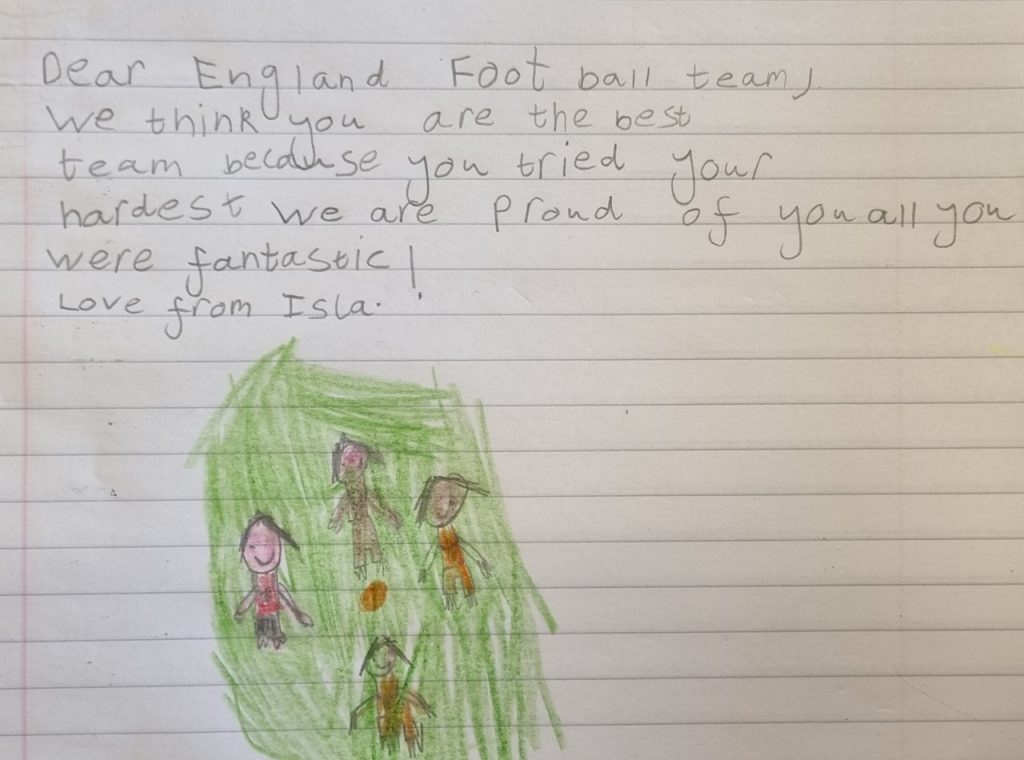 Dear England Foot ball team,
We think you are the best
team because you tried your
hardest we are proud of you all you
were fantastic!
Love from Isla.